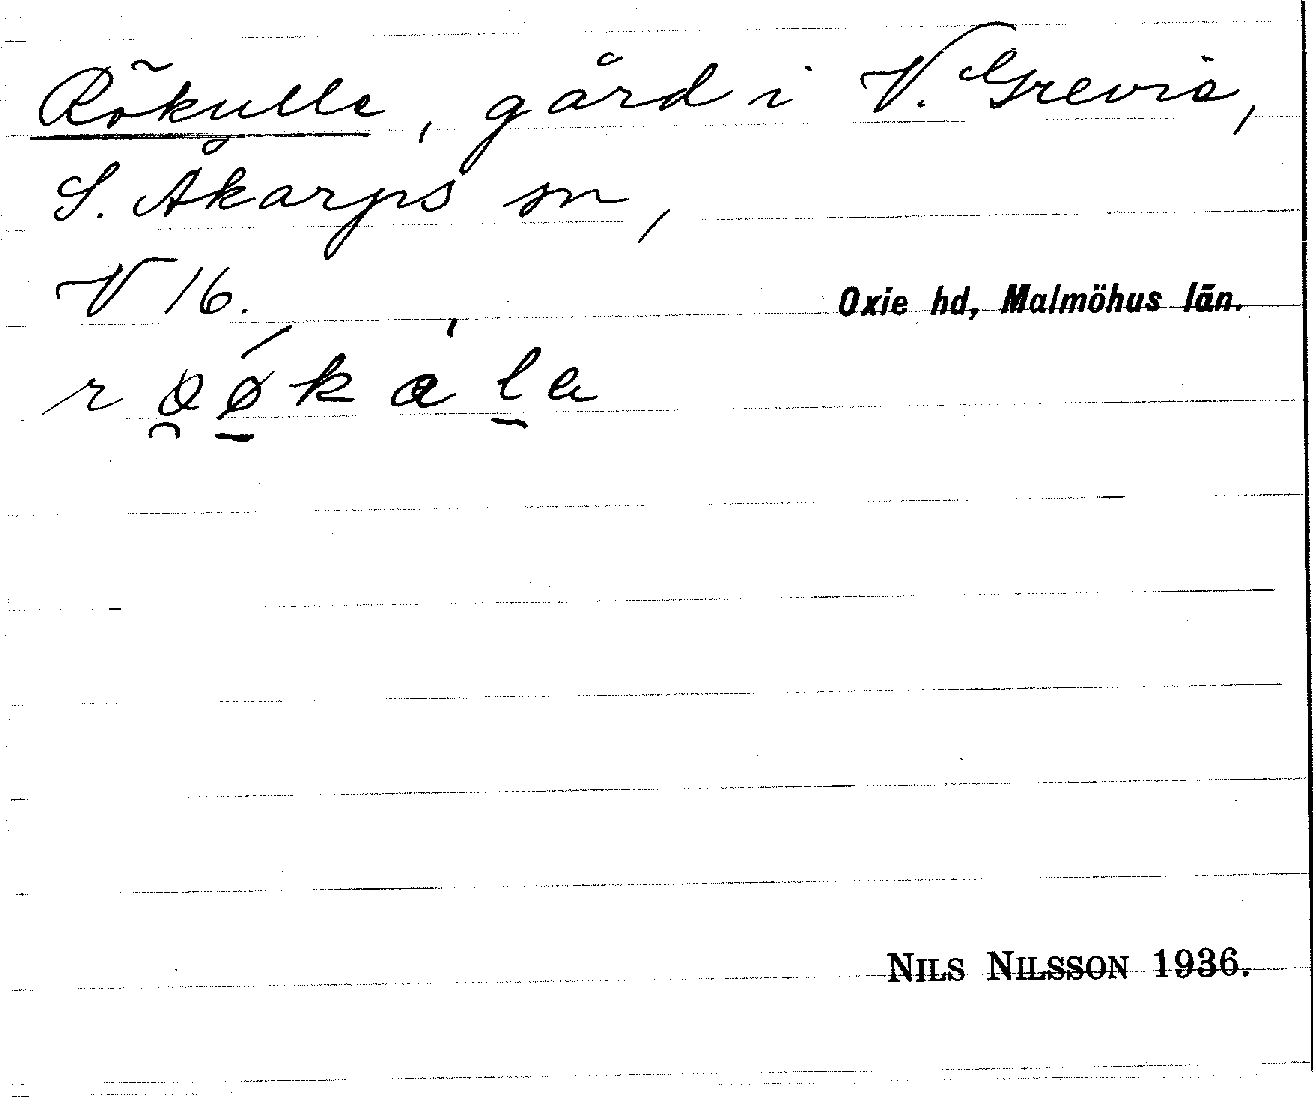 Rökulle, gård i V. Grevie,
S. Åkarps sn,
V 16.
Oxie hd, Malmöhus län.
NILS NILSSON 1936.